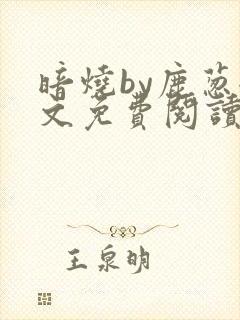 暗燒by鹿葱
文免費閱讀
王泉明